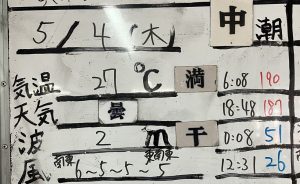 5/4(木) 中 潮
気温 27℃ 満 6:08 190
天気 曇 18:48 187
波 2m 干 0:08 51
風 南東 6~5~5~5 東南東 12:31 26